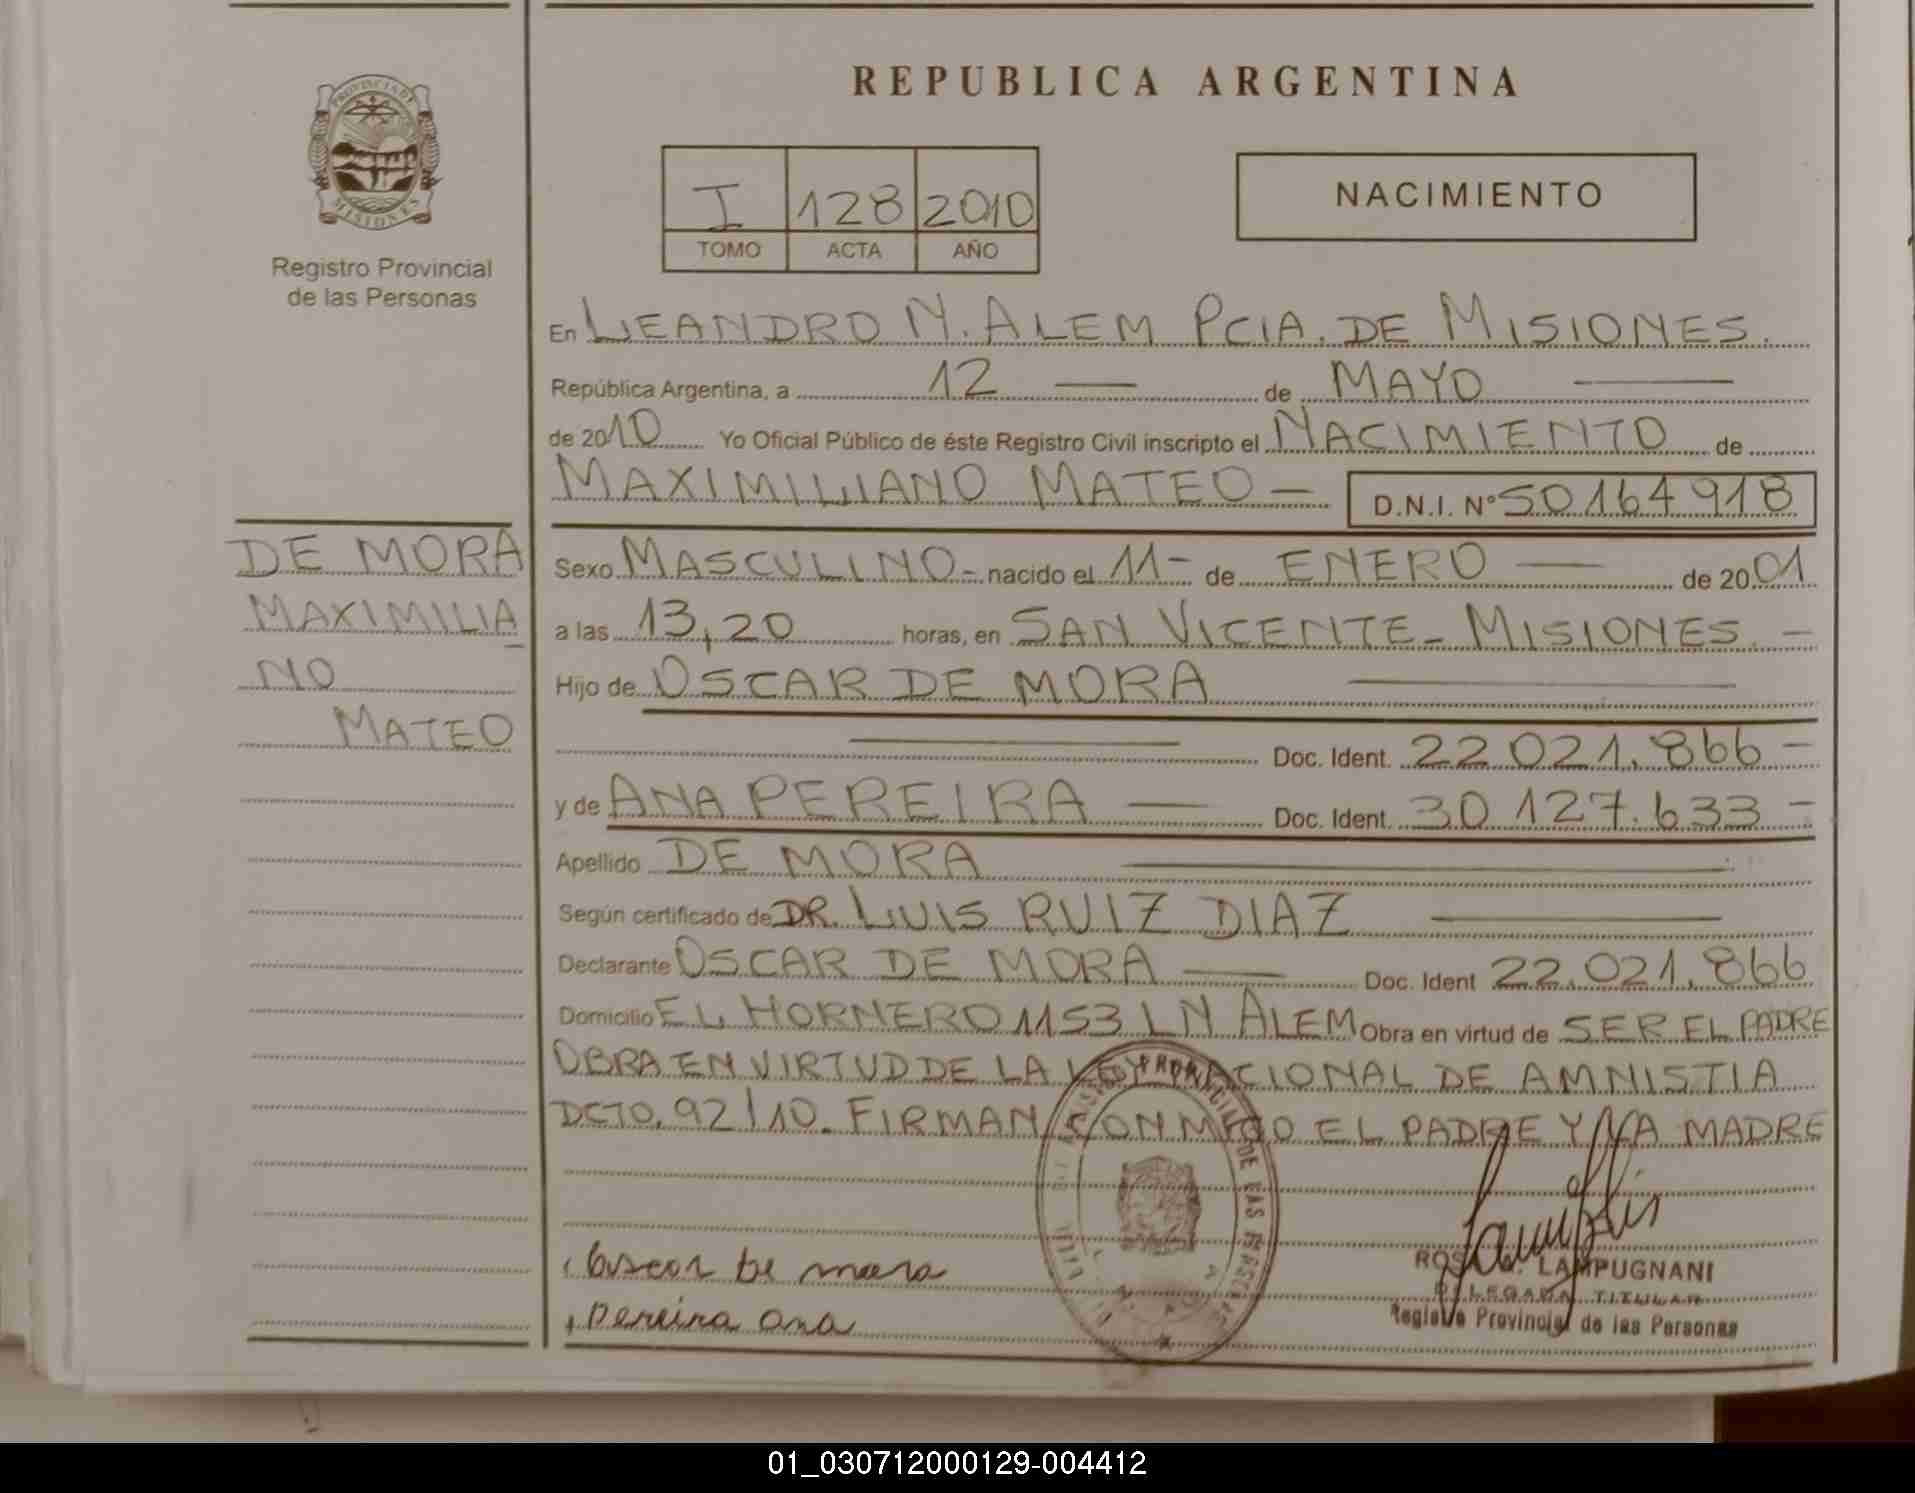 REPUBLICA ARGENTINA
PROVINCIA DE MISIONES
Registro Provincial
de las Personas
I 128 2010
TOMO ACTA AÑO
NACIMIENTO
En LEANDRO N. ALEM PCIA. DE MISIONES.
República Argentina, a 12 — de MAYO —
de 2010 Yo Oficial Público de éste Registro Civil inscripto el NACIMIENTO de
MAXIMILIANO MATEO — D.N.I. Nº 50164918
DE MORA
MAXIMILIA-
NO
MATEO
Sexo MASCULINO - nacido el 11 - de ENERO — de 2001
a las 13,20 horas, en SAN VICENTE - MISIONES. -
Hijo de OSCAR DE MORA —
— Doc. Ident. 22.021.866 -
y de ANA PEREIRA — Doc. Ident. 30.127.633 -
Apellido DE MORA —
Según certificado de DR. LUIS RUIZ DIAZ —
Declarante OSCAR DE MORA — Doc. Ident 22.021.866
Domicilio EL HORNERO 1153 LN ALEM Obra en virtud de SER EL PADRE
OBRA EN VIRTUD DE LA LEY NACIONAL DE AMNISTIA
DCTO. 92/10. FIRMAN CONMIGO EL PADRE Y LA MADRE
oscar de mora
pereira ana
LAMPUGNANI
DELEGADA TITULAR
Registro Provincial de las Personas
01_030712000129-004412